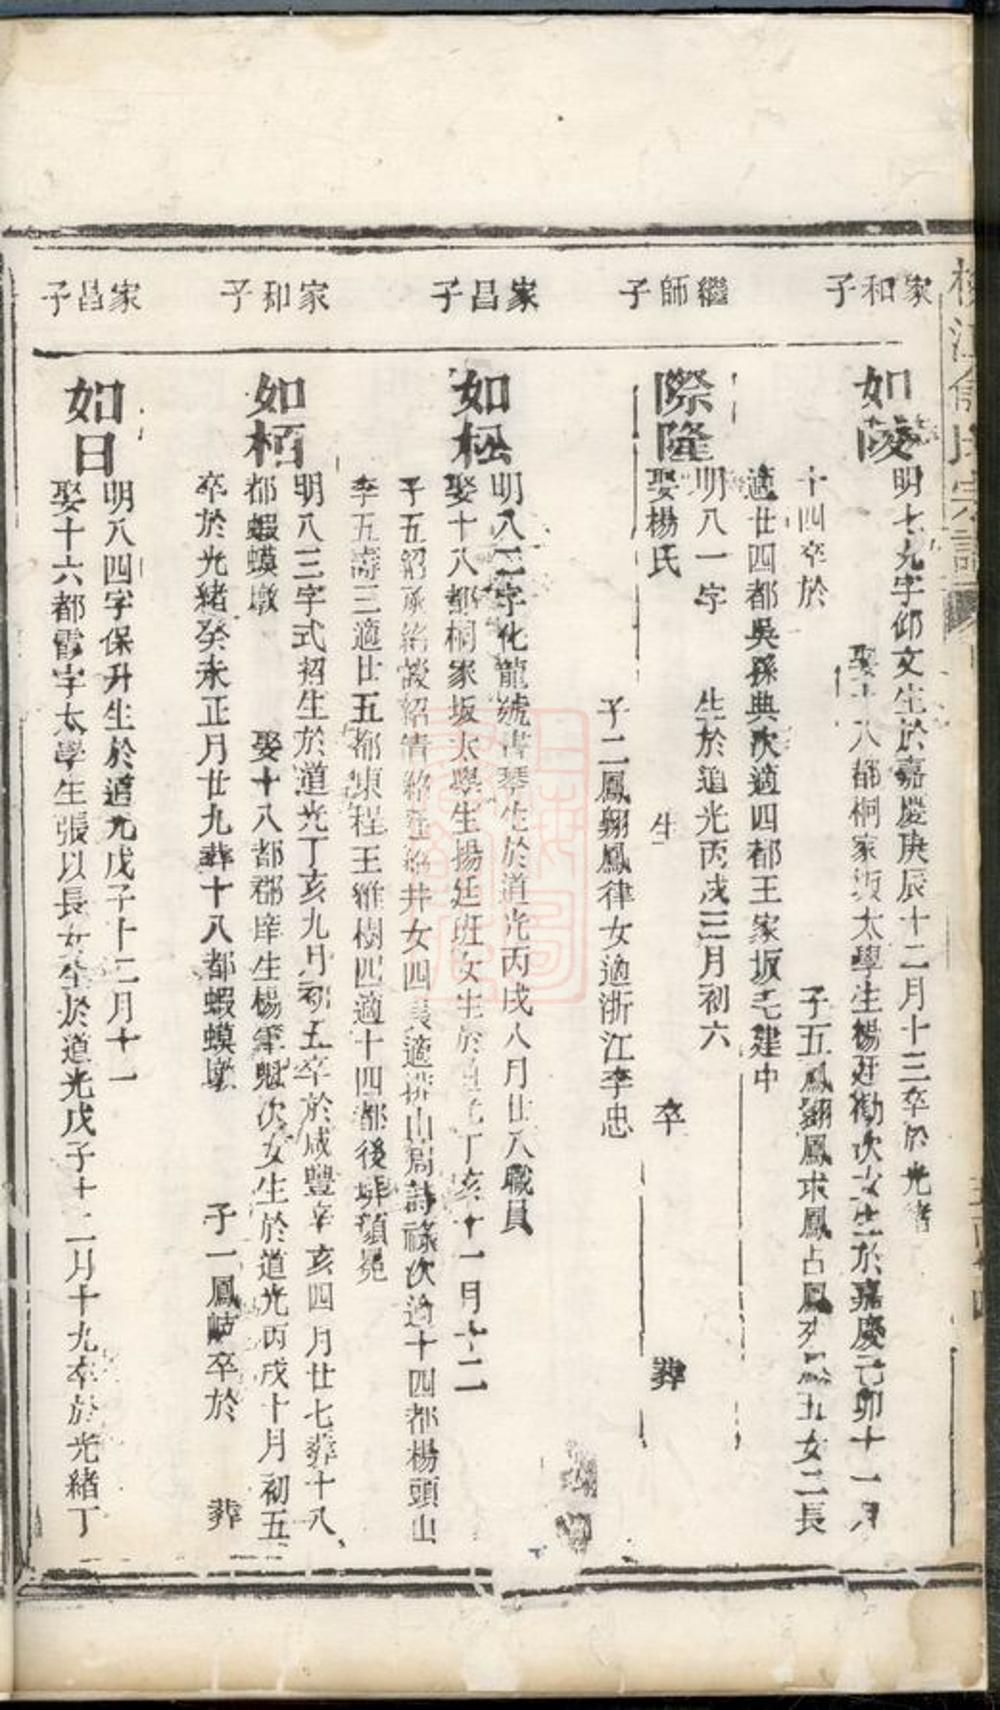 家和子
如陵
明七九字仰文生於嘉慶庚辰十二月十三卒於光緒
娶十八都桐家坂太學生楊廷勷次女生於嘉慶己卯十一月
十四卒於
子五鳳翽鳳求鳳占鳳 五女二長
適廿四都吳孫典次適四都王家坂毛建中
繼師子
際隆
明八一字
生於道光丙戌三月初六
娶楊氏
生
卒
葬
子二鳳翔鳳律女適浙江李忠
家昌子
如松
明八二字化龍號書琴生於道光丙戌八月廿八職員
娶十八都桐家坂太學生揚廷班女生於道光丁亥十一月十二
子五紹承紹 紹 紹 紹井女四長適排山周詩祿次適十四都楊頭山
李五濤三適廿五都東程王維樹四適十四都後 頭
家和子
如栢
明八三字式招生於道光丁亥九月初五卒於咸豐辛亥四月廿七葬十八
都蝦蟆墩
娶十八都郡庠生楊肇魁次女生於道光丙戌十月初五
卒於光緒癸未正月廿九葬十八都蝦蟆墩
子一鳳岐卒於
葬
家昌子
如日
明八四字保升生於道光戊子十二月十一
娶十六都霞宇太學生張以長女生於道光戊子十二月十九卒於光緒丁